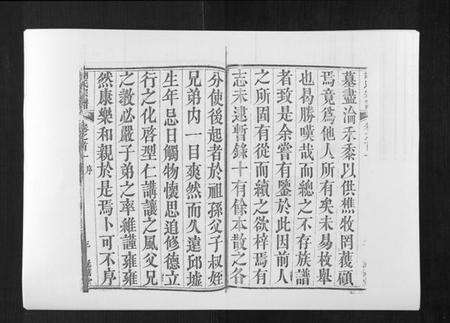 墓盡淪禾黍以供樵牧罔蒐碩
焉竟爲他人所有矣未易枚舉
也易勝嘆哉而總之不存族譜
者致是余嘗有鑒於此因前人
之所固有從而續之欲梓焉有
志未逮暫錄十有餘本散之各
分使後起者於祖孫父子叔姪
兄弟内一目爽然而久遠邱墟
生年忌日觸物懷思追修德立
行之化啓型仁講讓之風父兄
之教必嚴子弟之率維謹雍雍
然康樂和親於是焉卜可不序
卷之首 序